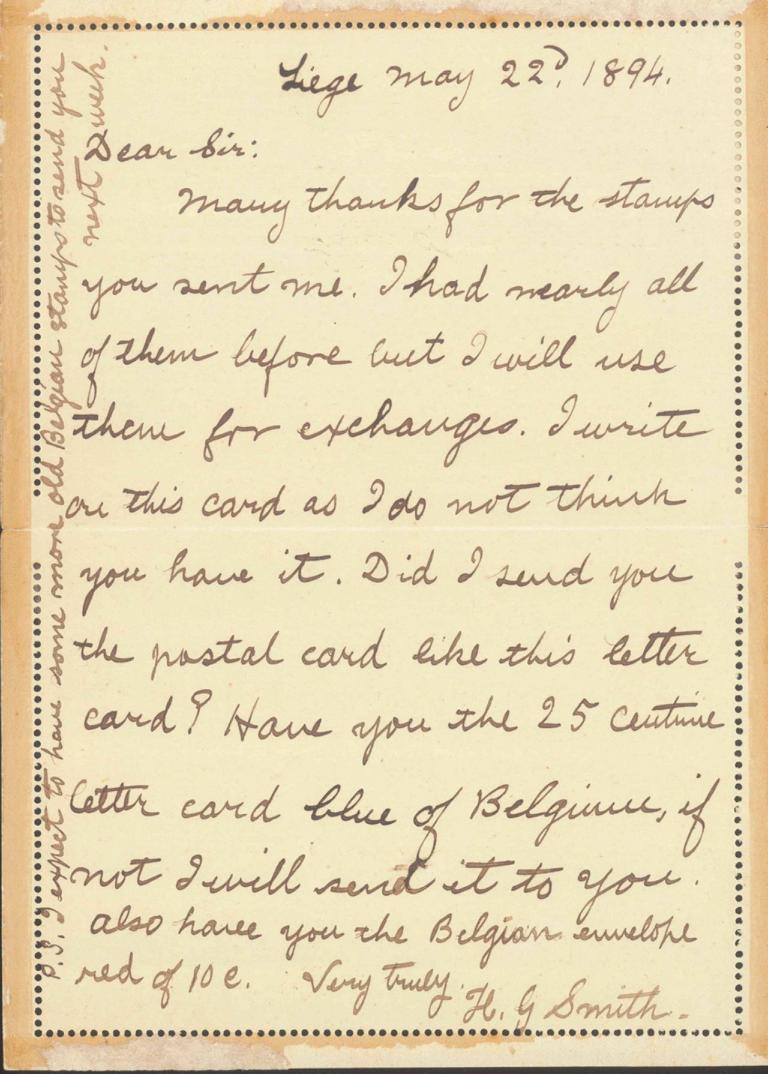 Liege May 22d, 1894.
Dear Sir:
Many thanks for the stamps
you sent me. I had nearly all
of them before but I will use
them for exchanges. I write
on this card as I do not think
you have it. Did I send you
the postal card like this letter
card? Have you the 25 centime
letter card blue of Belgium, if
not I will send it to you.
also have you the Belgian envelope
red of 10 c. Very truly.
H. G Smith.
P.S. I expect to have some more old Belgian stamps to send you
next week.